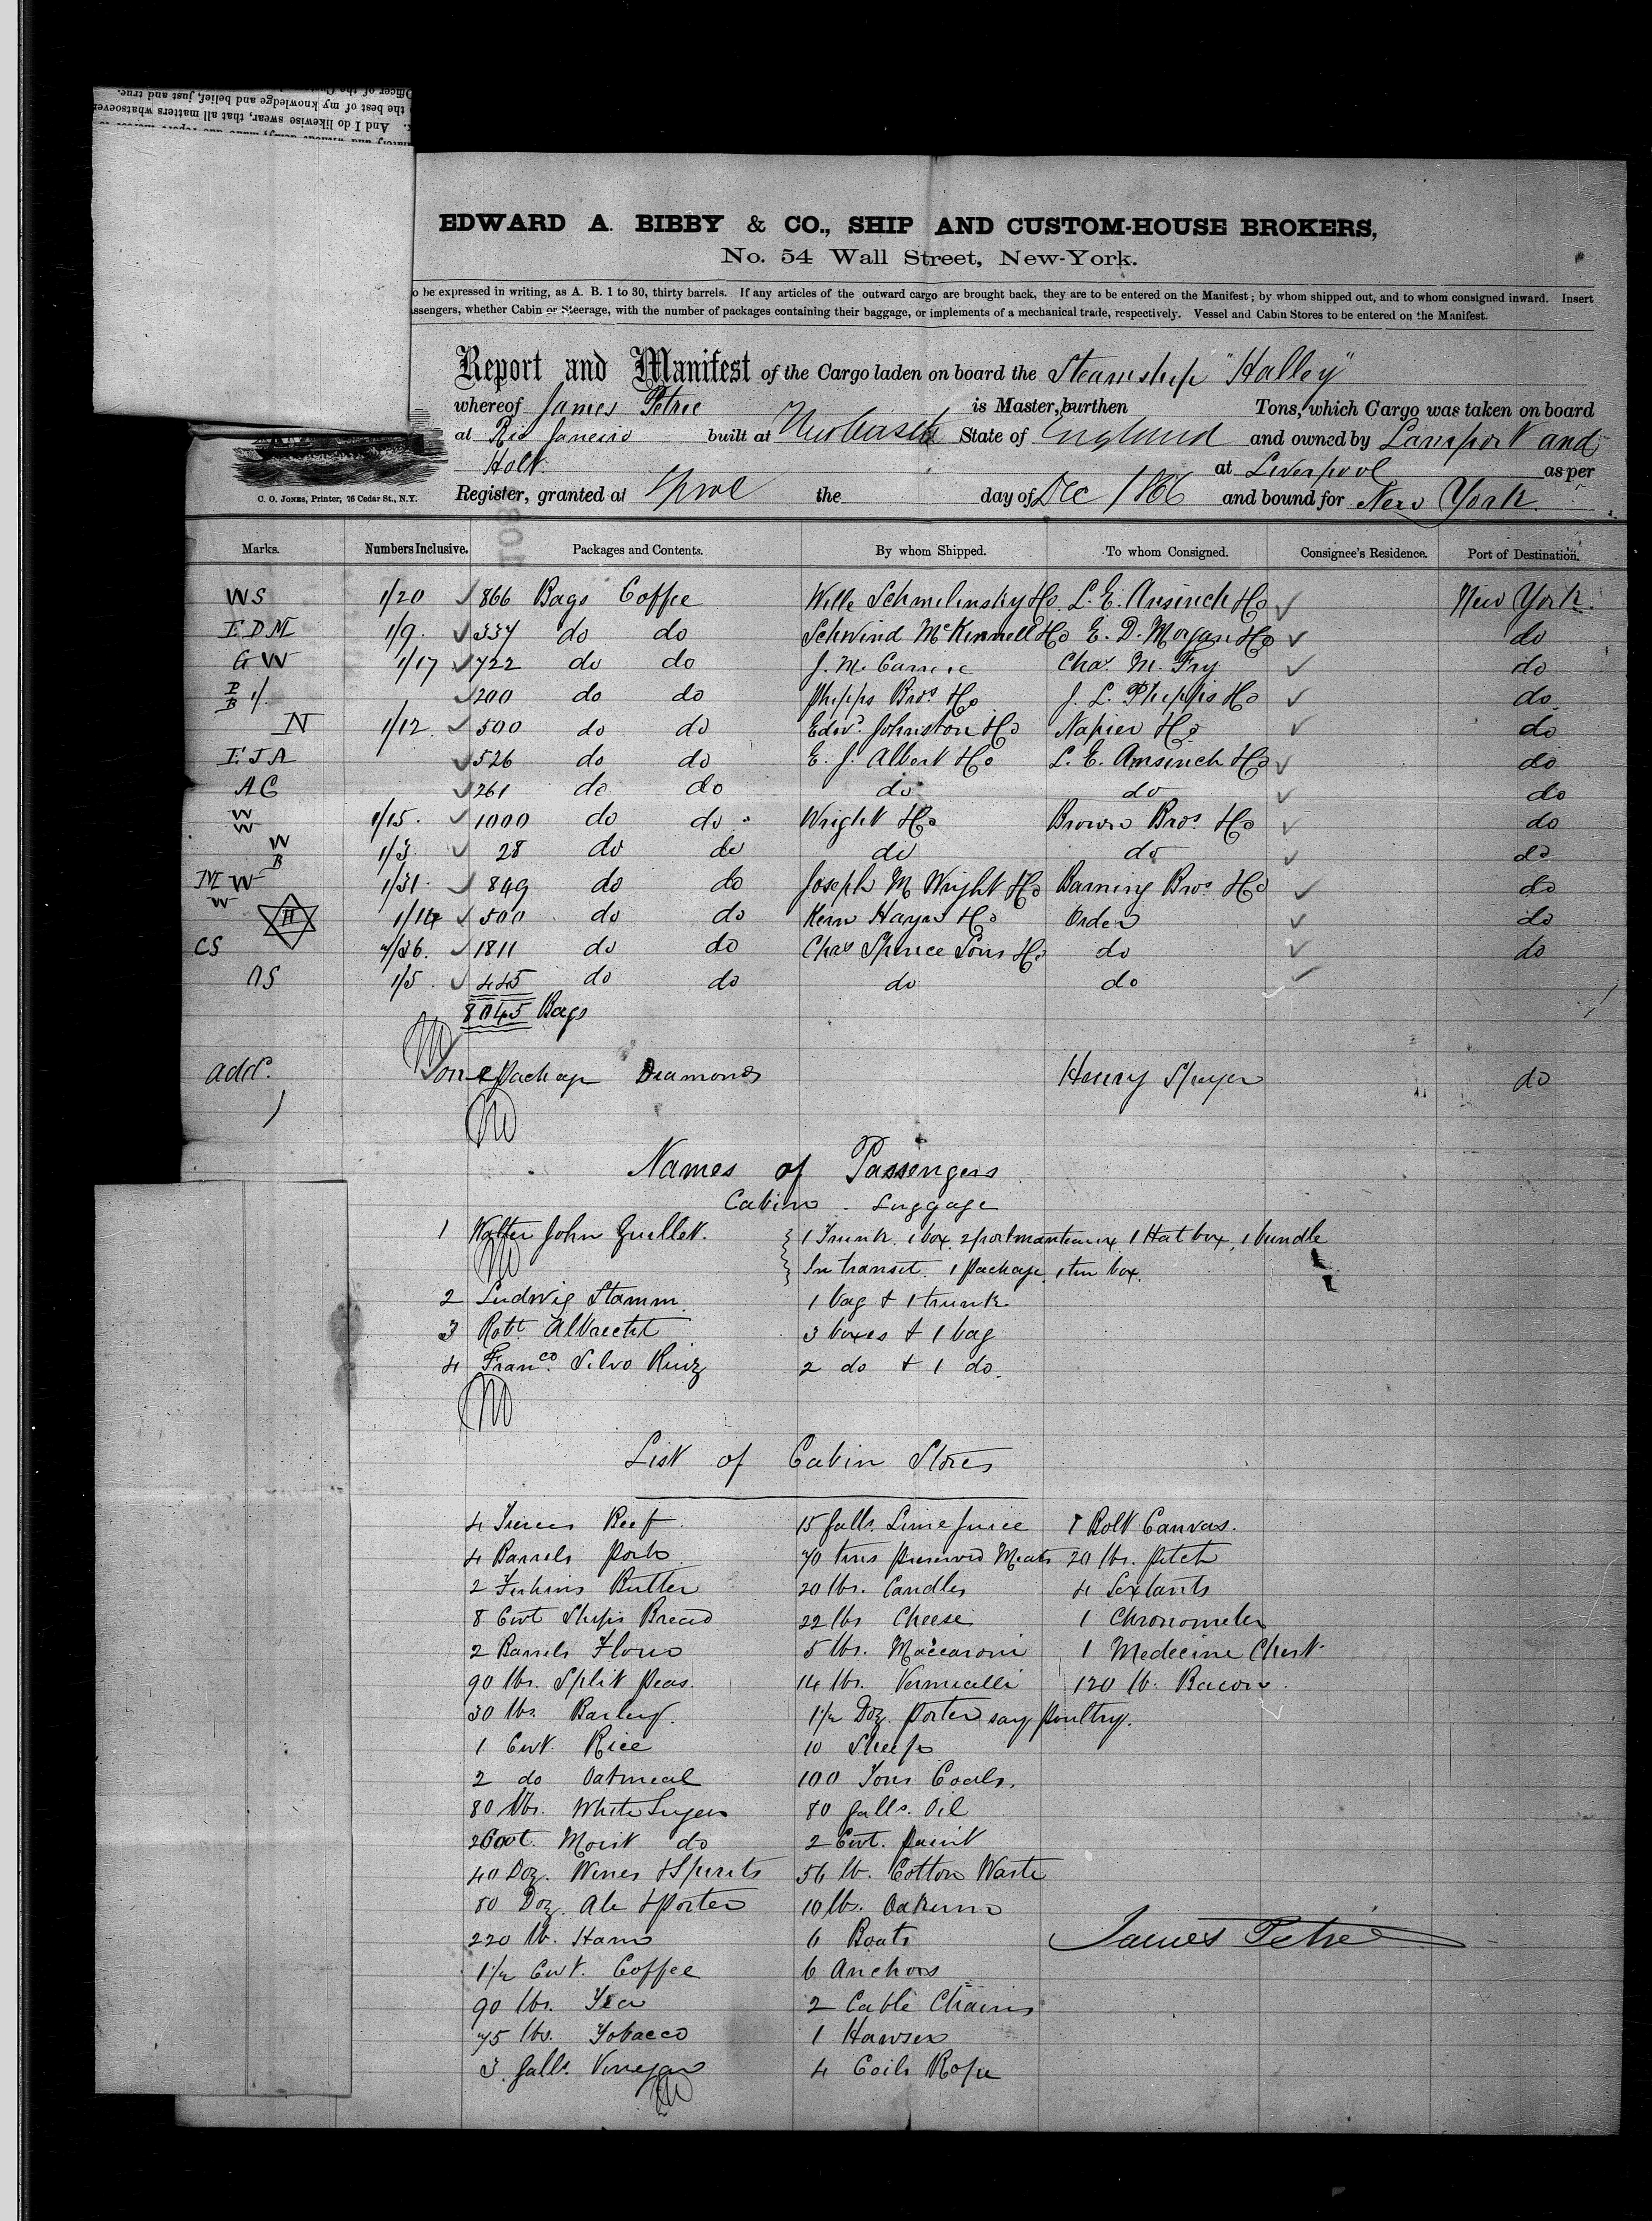 Officer of the Cus
the best of my knowledge and belief, just and true.
And I do likewise swear, that all matters whatsoever
EDWARD A. BIBBY & CO., SHIP AND CUSTOM-HOUSE BROKERS,
No. 54 Wall Street, New-York.
o be expressed in writing, as A. B. 1 to 30, thirty barrels. If any articles of the outward cargo are brought back, they are to be entered on the Manifest; by whom shipped out, and to whom consigned inward. Insert
assengers, whether Cabin or Steerage, with the number of packages containing their baggage, or implements of a mechanical trade, respectively. Vessel and Cabin Stores to be entered on the Manifest.
Report and Manifest of the Cargo laden on board the Steamship "Halley"
whereof James Petrie is Master, burthen Tons, which Cargo was taken on board
at Rio Janeiro built at Newcastle State of England and owned by Lamport and
Holt at Liverpool as per
Register, granted at Lpool the day of Dec 1866 and bound for New York.
C. O. JONES, Printer, 76 Cedar St., N.Y.
Marks. Numbers Inclusive. Packages and Contents. By whom Shipped. To whom Consigned. Consignee's Residence. Port of Destination.
WS 1/20 866 Bags Coffee Wille Schmilinsky & Co. L. E. Amsinck & Co New York.
EDM 1/9. 337 do do Schwind McKinnell & Co E. D. Morgan & Co do
GW 1/17 722 do do J. M. Chas. M. Fry do
P B 1/. 200 do do Phipps Bros & Co J. L. Phipps & Co do
N 1/12. 500 do do Edwd. Johnston & Co Napier & Co do
EJA 526 do do E. J. Albert & Co L. E. Amsinck & Co do
AC 261 do do do do do
W W 1/15. 1000 do do Wright & Co Brown Bros. & Co do
W B 1/3 28 do do do do do
M W W 1/31. 849 do do Joseph M Wright & Co Barning Bros. & Co do
H 1/14 500 do do Kern Hayn & Co Order do
CS 1/36. 1811 do do Chas Spence Sons & Co do do
AS 1/5. 445 do do do do
8045 Bags
add. one package Diamonds Henry Speyer do
Names of Passengers
Cabin - Luggage
1 Walter John Quellet. 1 Trunk, 1 box, 2 portmanteaux, 1 Hat box, 1 bundle
In transit. 1 package, 1 tin box.
2 Ludwig Stamm. 1 bag & 1 trunk
3 Robt Albrecht 3 boxes & 1 bag
4 Franco. Silvo Ruiz 2 do & 1 do.
List of Cabin Stores
4 Tierces Beef. 15 galls. Lime Juice 1 Bolt Canvas.
4 Barrels Pork 70 tins Preserved Meats 20 lbs. Pitch
2 Firkins Butter 20 lbs. Candles 4 Sextants
8 Cwt Ships Bread 22 lbs Cheese 1 Chronometer
2 Barrels Flour 5 lbs. Maccaroni 1 Medecine Chest
90 lbs. Split Peas. 14 lbs. Vermicelli 120 lb. Bacon.
30 lbs. Barley. 1 1/2 Doz. Porter say Poultry.
1 Cwt. Rice 10 Sheep
2 do Oatmeal 100 Tons Coals.
80 lbs. White Sugar 80 galls. Oil
2 Cwt. Moist do 2 Cwt. Paint
40 Doz. Wines & Spirits 56 lb. Cotton Waste
80 Doz. Ale & Porter 10 lbs. Oakum
220 lb. Ham 6 Boats James Petrie
1 1/2 Cwt. Coffee 6 Anchors
90 lbs. Tea 2 Cable Chains
75 lbs. Tobacco 1 Hawser
3 galls. Vinegar 4 Coils Rope